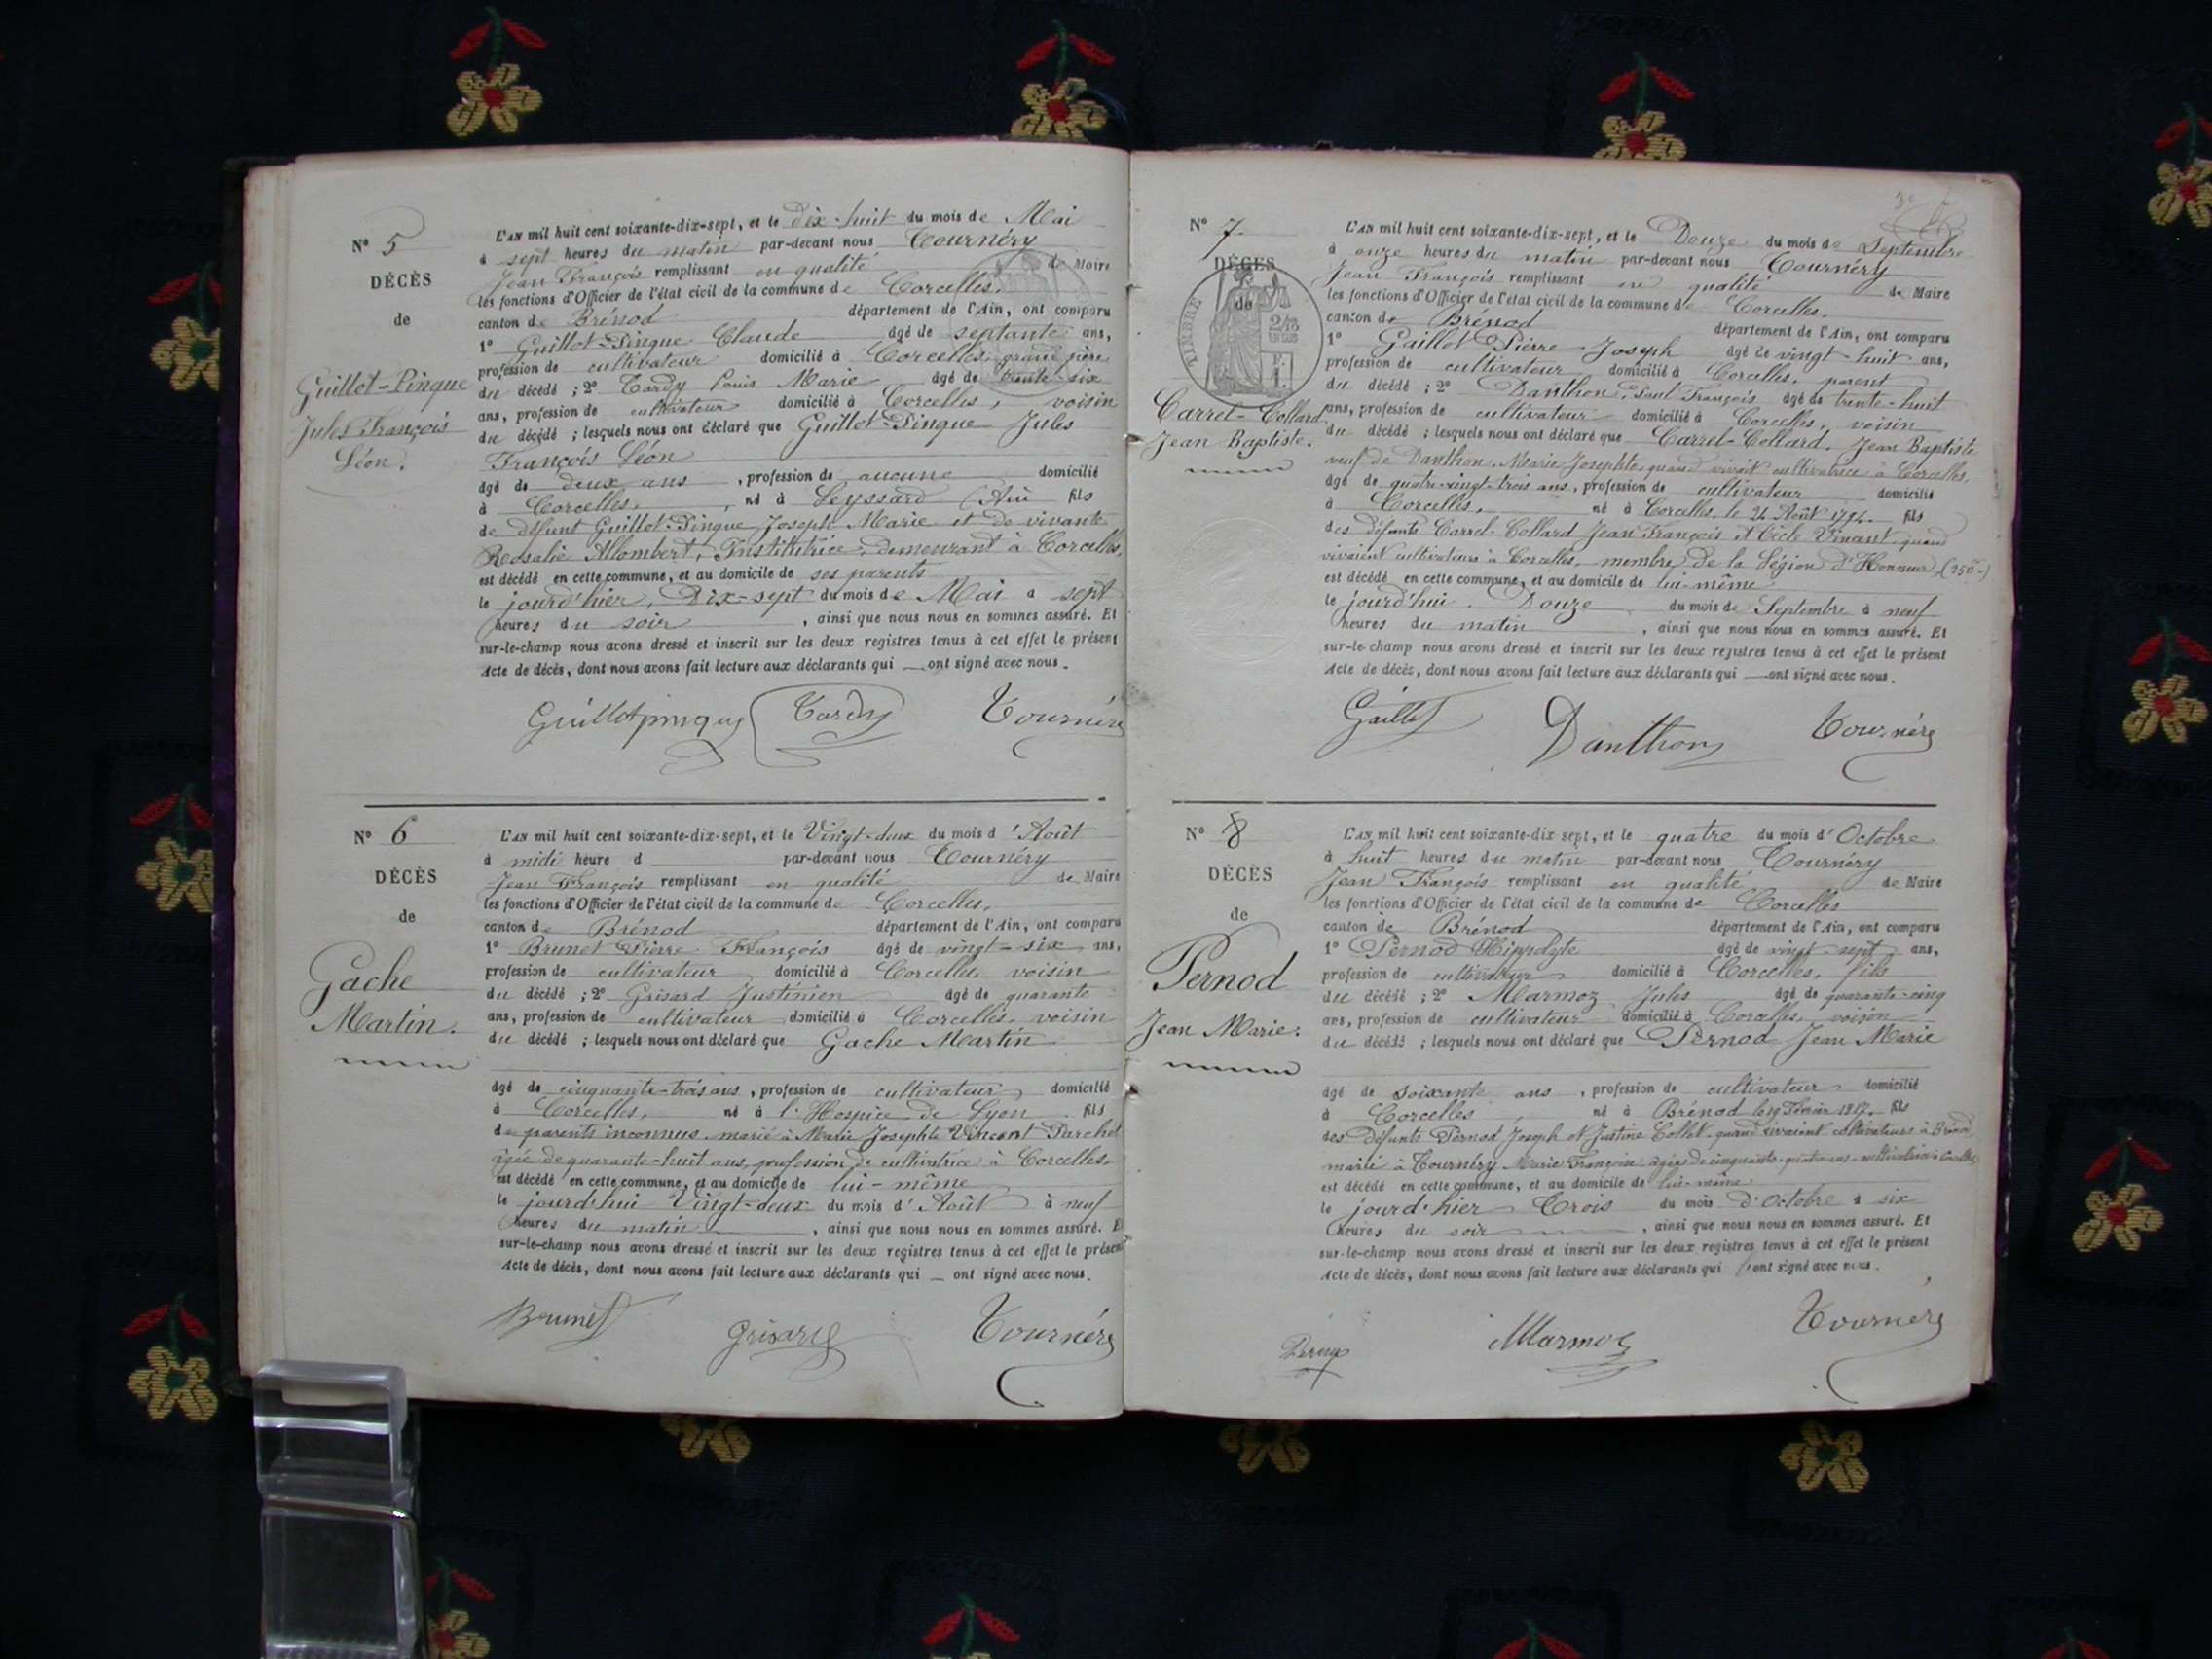 N° 5
DÉCÈS
de
Guillot-Pinque
Jules François
Léon.
L'AN mil huit cent soixante-dix-sept, et le dix-huit du mois de Mai
à sept heures du matin par-devant nous Tournéry
Jean François remplissant en qualité de Maire
les fonctions d'Officier de l'état civil de la commune de Corcelles.
canton de Brénod département de l'Ain, ont comparu
1° Guillot-Pinque Claude âgé de septante ans,
profession de cultivateur domicilié à Corcelles, grand père
du décédé ; 2° Tardy Louis Marie âgé de trente-six
ans, profession de cultivateur domicilié à Corcelles, voisin
du décédé ; lesquels nous ont déclaré que Guillot-Pinque Jules
François Léon
âgé de deux ans , profession de aucune domicilié
à Corcelles, né à Leyssard (Ain fils
de défunt Guillot-Pinque Joseph Marie et de vivante
Rosalie Allombert, Institutrice, demeurant à Corcelles,
est décédé en cette commune, et au domicile de ses parents
le jourd'hier, Dix-sept du mois de Mai à sept
heures du soir , ainsi que nous nous en sommes assuré. Et
sur-le-champ nous avons dressé et inscrit sur les deux registres tenus à cet effet le présent
Acte de décès, dont nous avons fait lecture aux déclarants qui ont signé avec nous.
Guillotpinque Tardy Tournéry
N° 6
DÉCÈS
de
Gache
Martin.
L'AN mil huit cent soixante-dix-sept, et le Vingt-deux du mois d'Août
à midi heure d par-devant nous Tournéry
Jean François remplissant en qualité de Maire
les fonctions d'Officier de l'état civil de la commune de Corcelles,
canton de Brénod département de l'Ain, ont comparu
1° Brunet Pierre François âgé de vingt-six ans,
profession de cultivateur domicilié à Corcelles voisin
du décédé ; 2° Grisard Justinien âgé de quarante
ans, profession de cultivateur domicilié à Corcelles, voisin
du décédé ; lesquels nous ont déclaré que Gache Martin
âgé de cinquante-trois ans , profession de cultivateur domicilié
à Corcelles, né à l'Hospice de Lyon fils
de parents inconnus marié à Marie Josephte Vincent
âgée de quarante-huit ans, profession de cultivatrice à Corcelles.
est décédé en cette commune, et au domicile de lui-même
le jourd'hui Vingt-deux du mois d'Août à neuf
heures du matin , ainsi que nous nous en sommes assuré. Et
sur-le-champ nous avons dressé et inscrit sur les deux registres tenus à cet effet le présent
Acte de décès, dont nous avons fait lecture aux déclarants qui ont signé avec nous.
Brunet Grisard Tournéry
N° 7.
DÉCÈS
de
TIMBRE
Carrel-Collard
Jean Baptiste.
L'AN mil huit cent soixante-dix-sept, et le Douze du mois de Septembre
à onze heures du matin par-devant nous Tournéry
Jean François remplissant en qualité de Maire
les fonctions d'Officier de l'état civil de la commune de Corcelles.
canton de Brénod département de l'Ain, ont comparu
1° Gaillot Pierre Joseph âgé de vingt-huit ans,
profession de cultivateur domicilié à Corcelles, parent
du décédé ; 2° Danthon, Paul François âgé de trente-huit
ans, profession de cultivateur domicilié à Corcelles, voisin
du décédé ; lesquels nous ont déclaré que Carrel-Collard, Jean Baptiste
veuf de Danthon, Marie Josephte quand vivait cultivatrice à Corcelles,
âgé de quatre-vingt-trois ans, profession de cultivateur domicilié
à Corcelles, né à Corcelles, le 24 Août 1794. fils
des défunts Carrel-Collard Jean François et Cécile Vincent quand
vivaient cultivateurs à Corcelles, membre de la Légion d'Honneur (250-)
est décédé en cette commune, et au domicile de lui-même
le jourd'hui. Douze du mois de Septembre à neuf
heures du matin , ainsi que nous nous en sommes assuré. Et
sur-le-champ nous avons dressé et inscrit sur les deux registres tenus à cet effet le présent
Acte de décès, dont nous avons fait lecture aux déclarants qui ont signé avec nous.
Gaillot Danthon Tournéry
N° 8
DÉCÈS
de
Pernod
Jean Marie.
L'AN mil huit cent soixante-dix sept, et le quatre du mois d'Octobre
à huit heures du matin par-devant nous Tournéry
Jean François remplissant en qualité de Maire
les fonctions d'Officier de l'état civil de la commune de Corcelles
canton de Brénod département de l'Ain, ont comparu
1° Pernod Hippolyte âgé de vingt-sept ans,
profession de cultivateur domicilié à Corcelles, fils
du décédé ; 2° Marmoz Jules âgé de quarante-cinq
ans, profession de cultivateur domicilié à Corcelles, voisin
du décédé ; lesquels nous ont déclaré que Pernod Jean Marie
âgé de soixante ans , profession de cultivateur domicilié
à Corcelles né à Brénod le 19 Février 1817. fils
des défunts Pernod Joseph et Justine Collet quand vivaient cultivateurs à Brénod
marié à Tournéry Marie Françoise âgée de cinquante-quatre ans cultivatrice à Corcelles
est décédé en cette commune, et au domicile de lui-même
le jourd'hier Trois du mois d'Octobre à six
heures du soir , ainsi que nous nous en sommes assuré. Et
sur-le-champ nous avons dressé et inscrit sur les deux registres tenus à cet effet le présent
Acte de décès, dont nous avons fait lecture aux déclarants qui ont signé avec nous.
Marmoz Tournéry